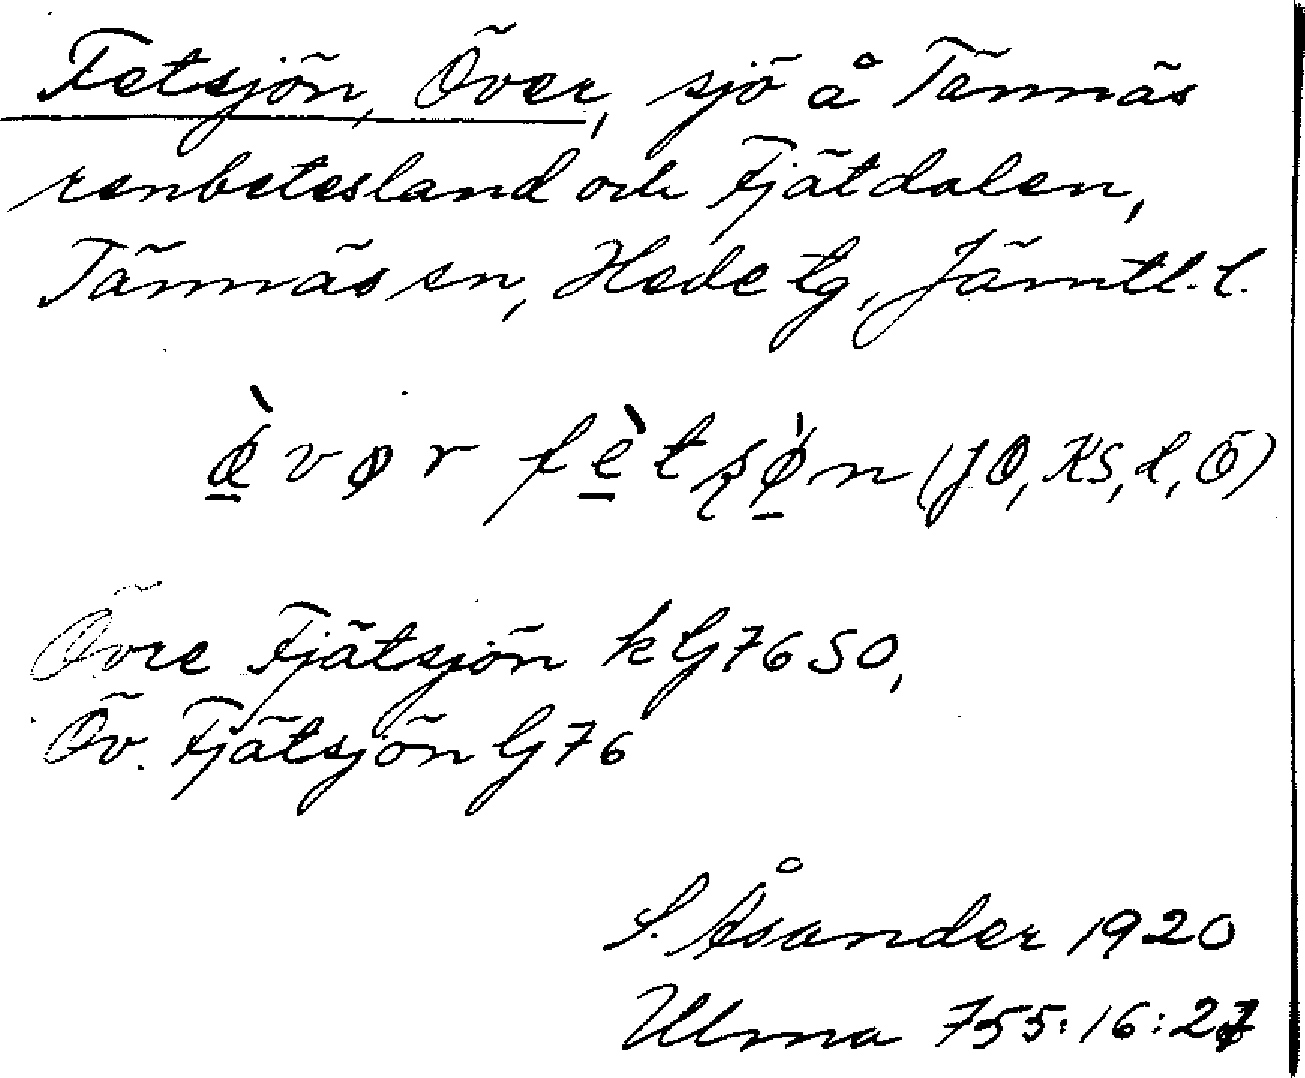 Fetsjön, Över, sjö å Tännäs
renbetesland och Fjätdalen,
Tännäs sn, Hede tg, Jämtl. l.
ø̠̀vør fè̠tʂø̠̀n (JO, KS, l, Ö)
Övre Fjätsjön kG76SO,
Öv. Fjätsjön G76
S. Åsander 1920
Ulma 755:16:27